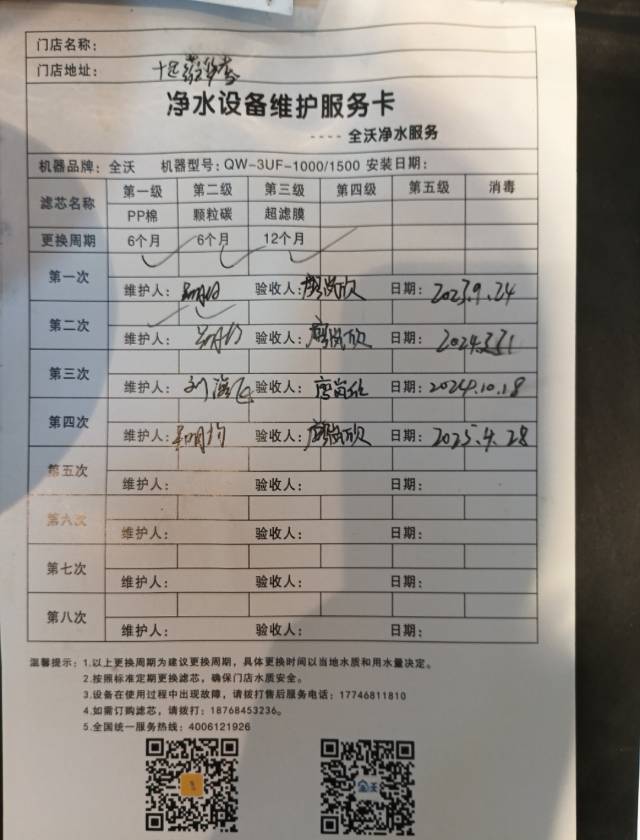 门店名称：
门店地址：
净水设备维护服务卡
---- 全沃净水服务
机器品牌：全沃 机器型号：QW-3UF-1000/1500 安装日期：
滤芯名称 第一级 第二级 第三级 第四级 第五级 消毒
PP棉 颗粒碳 超滤膜
更换周期 6个月 6个月 12个月
第一次
维护人： 验收人：廖岚欣 日期：2023.9.24
第二次
维护人： 验收人：廖岚欣 日期：2024.3.31
第三次
维护人：刘 验收人：廖岚欣 日期：2024.10.18
第四次
维护人： 验收人：廖岚欣 日期：2025.4.28
第五次
维护人： 验收人： 日期：
第六次
维护人： 验收人： 日期：
第七次
维护人： 验收人： 日期：
第八次
维护人： 验收人： 日期：
温馨提示：1.以上更换周期为建议更换周期，具体更换时间以当地水质和用水量决定。
2.按照标准定期更换滤芯，确保门店水质安全。
3.设备在使用过程中出现故障，请拨打售后服务电话：17746811810
4.如需订购滤芯，请拨打：18768453236。
5.全国统一服务热线：4006121926
全沃